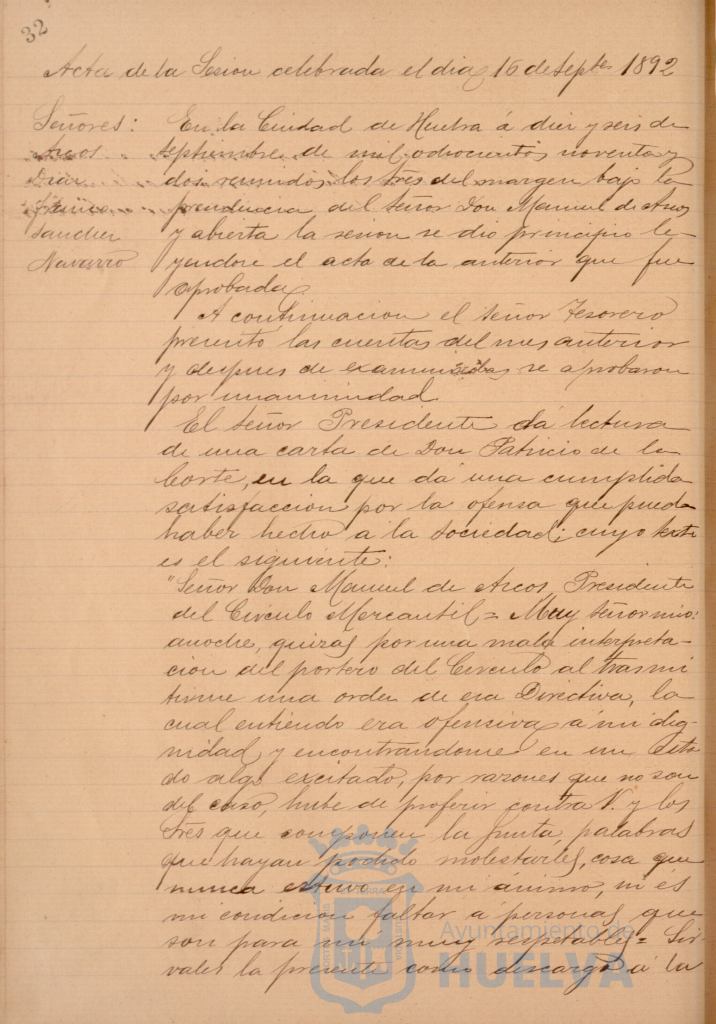 32
Acta de la Sesion celebrada el dia 16 de Septbre 1892
Señores:
Arcos
Diaz
Sanchez
Navarro
En la Ciudad de Huelva á diez y seis de
septiembre de mil ochocientos noventa y
dos reunidos los Sres del margen bajo la
presidencia del Señor Don Manuel de Arcos
y abierta la sesion se dio principio le-
yendose el acta de la anterior que fue
aprobada
A continuacion el Señor Tesorero
presentó las cuentas del mes anterior
y despues de examinadas se aprobaron
por unanimidad
El Señor Presidente dá lectura
de una carta de Don Patricio de la
Corte, en la que dá una cumplida
satisfaccion por la ofensa que pueda
haber hecho a la Sociedad; cuyo testo
es el siguiente:
"Señor Don Manuel de Arcos, Presidente
del Circulo Mercantil = Muy Señor mio:
anoche, quizas por una mala interpreta-
cion del portero del Circulo al trasmi
tirme una orden de esa Directiva, la
cual entiendo era ofensiva á mi dig-
nidad, y encontrandome en un esta
do algo excitado, por razones que no son
del caso, hube de proferir contra V. y los
Sres que componen la Junta, palabras
que hayan podido molestarles, cosa que
nunca estuvo en mi ánimo, ni es
mi condicion faltar á personas que
son para mi muy respetables = Sir-
vales la presente como descargo á la
Ayuntamiento de
HUELVA